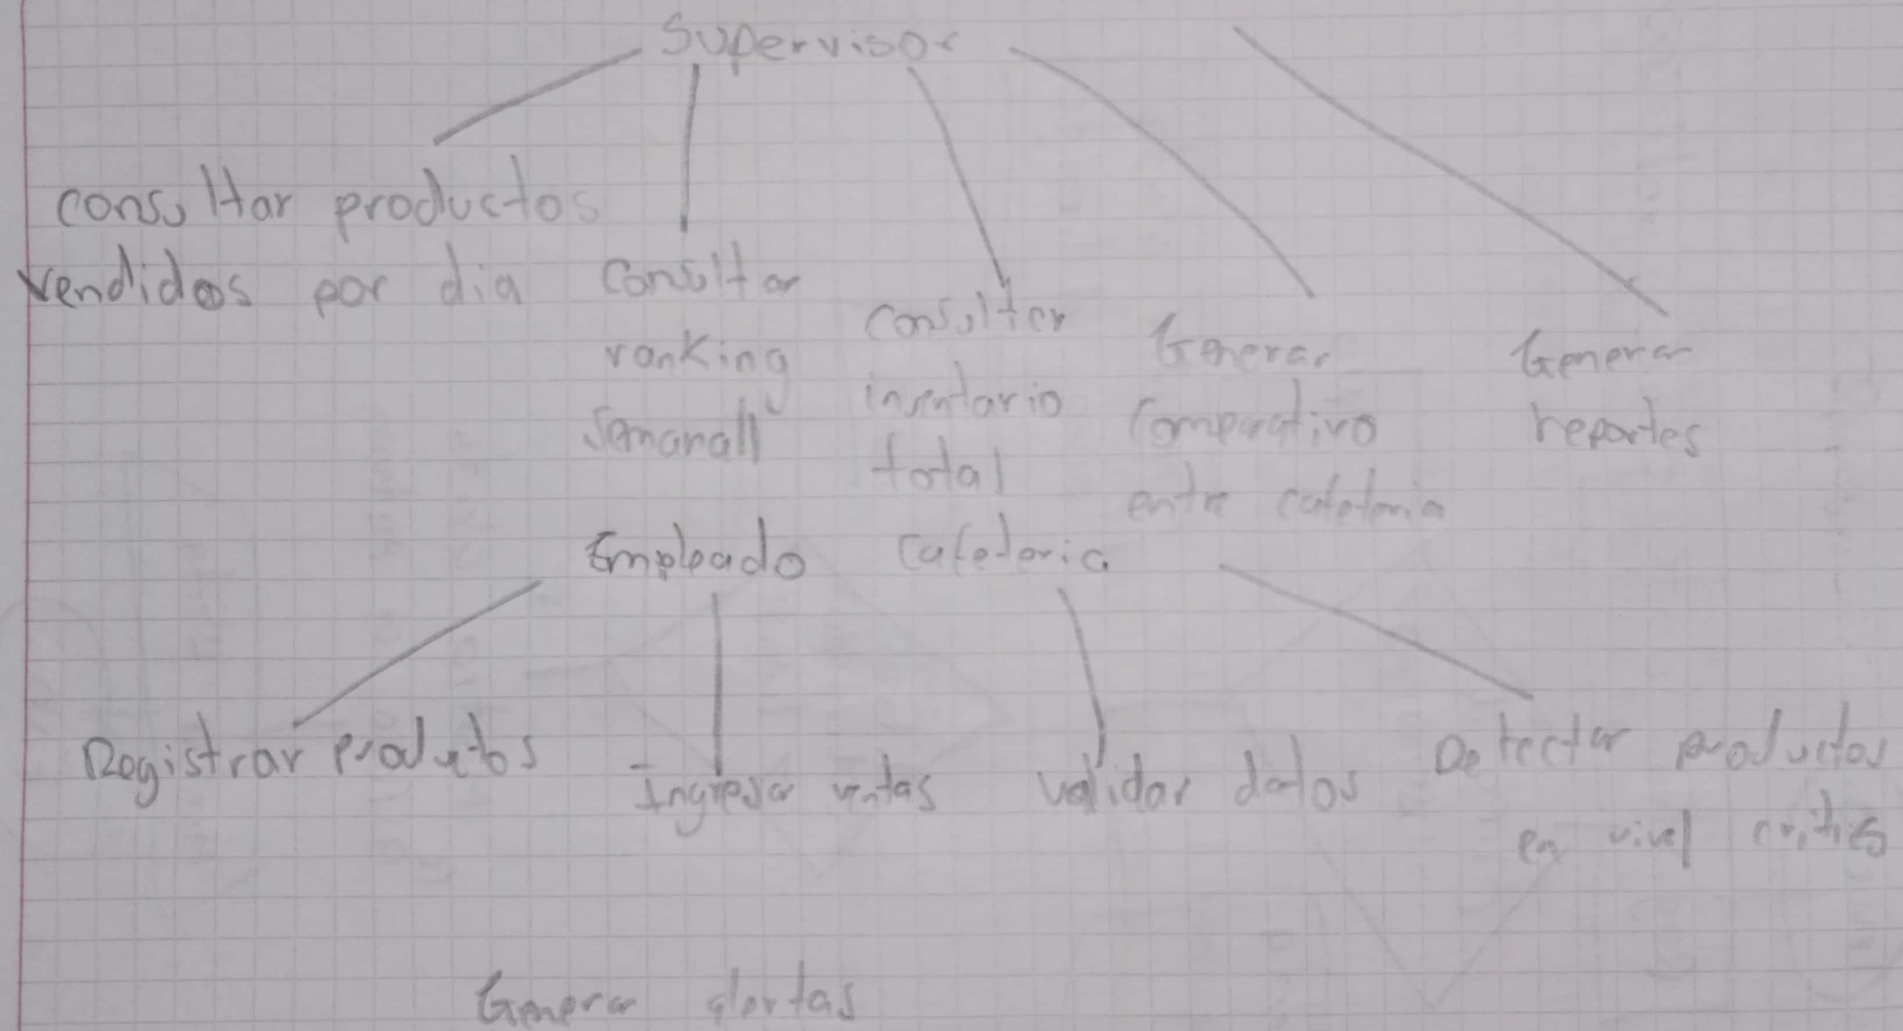 Supervisor
consultar productos
vendidos por dia
consultar
ranking
semanall
consultar
inventario
total
Generar
Comparativo
entre cafeteria
Generar
reportes
Empleado cafeteria
Registrar productos
Ingresar ventas
validar datos
Detectar productos
en nivel critico
Generar alertas